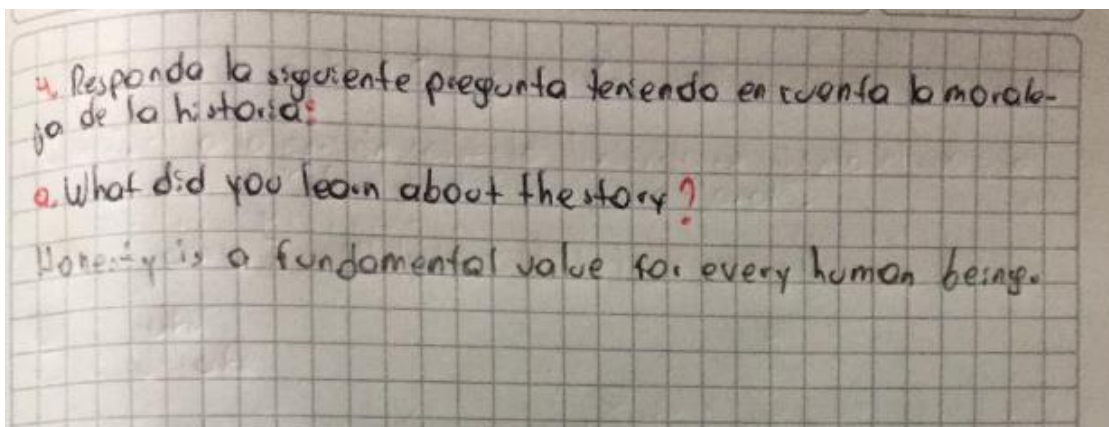 4. Responda la siguiente pregunta teniendo en cuenta la morale-
ja de la historia:
a. What did you learn about the story?
Honesty is a fundamental value for every human being.